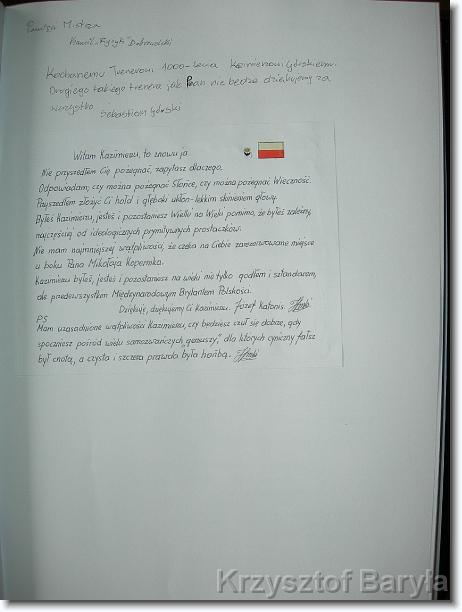 Mistrza
Kamil „Fryzyk” Dobrowolski
Kochanemu Trenerowi 1000-lecia Kazimierzowi Górskiemu.
Drugiego takiego trenera jak Pan nie będzie dziękujemy za
wszystko
Sebastian Górski
Witam Kazimierzu, to znowu ja
Nie przyszedłem Cię pożegnać, zapytasz dlaczego.
Odpowiadam, czy można pożegnać Słońce, czy można pożegnać Wieczność.
Przyszedłem złożyć Ci hołd i głęboki ukłon-lekkim skinieniem głowy.
Byłeś Kazimierzu, jesteś i pozostaniesz Wielki na Wieki pomimo, że byłeś zależny,
najczęściej od ideologicznych prymitywnych prostaczków.
Nie mam najmniejszej wątpliwości, że czeka na Ciebie zarezerwowane miejsce
u boku Pana Mikołaja Kopernika.
Kazimierzu byłeś, jesteś i pozostaniesz na wieki nie tylko godłem i sztandarem,
ale przedewszystkim Międzynarodowym Brylantem Polskości.
Dziękuję, dziękujemy Ci Kazimierzu. Józef Katonis.
PS
Mam uzasadnione wątpliwości Kazimierzu, czy będziesz czuł się dobrze, gdy
spoczniesz pośród wielu samozwańczych „geniuszy”, dla których cyniczny fałsz
był cnotą, a czysta i szczera prawda była hańbą.
Krzysztof Baryła